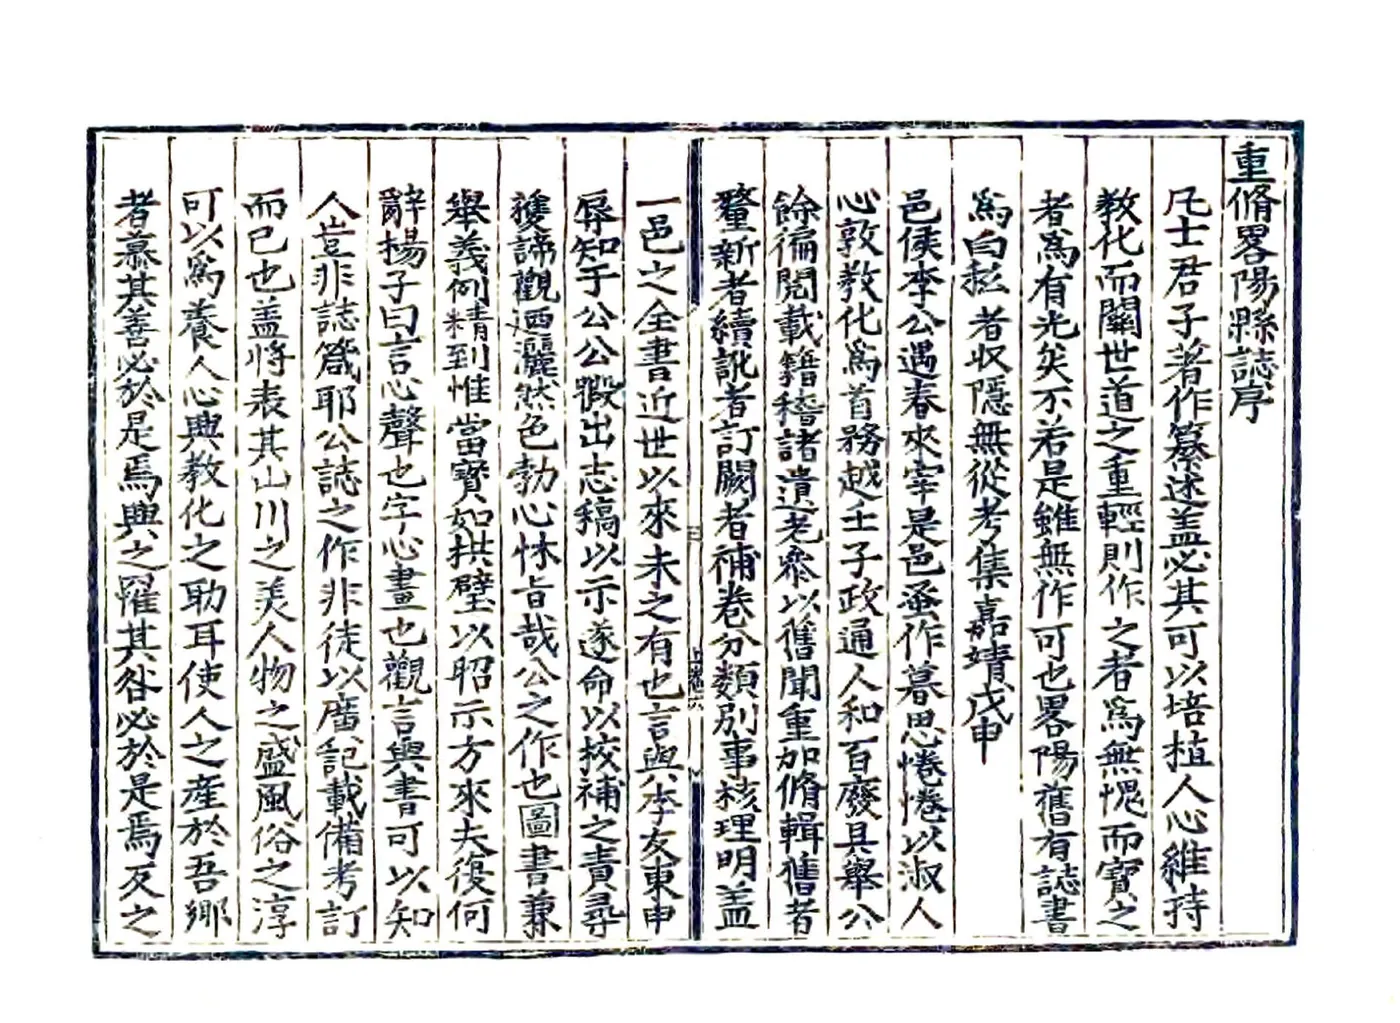 重脩畧陽縣誌序
凡士君子著作纂述盖必其可以培植人心維持
教化而關世道之重輕則作之者爲無愧而寳之
者爲有光矣不若是雖無作可也畧陽舊有誌書
爲白 者収隱無從考集嘉靖戊申
邑侯李公遇春來宰是邑蚤作暮思惓惓以淑人
心敦教化爲首務越士子政通人和百廢具舉公
餘徧閱載籍稽諸遺老叅以舊聞重加脩輯舊者
釐新者續訛者訂闕者補卷分類别事核理明盖
一邑之全書近世以來未之有也言與李友東申
辱知于公公緞出志稿以示遂命以校補之責尋
䕶諦觀迺灑然色勃心怵旨哉公之作也圖書兼
舉義例精到惟當寳如拱壁以昭示方來夫復何
辭楊子曰言心聲也字心畫也觀言與書可以知
人豈非誌箴耶公誌之作非徒以廣記載備考訂
而已也盖將表其山川之美人物之盛風俗之淳
可以爲養人心興教化之助耳使人之産於吾鄉
者慕其善必於是焉興之罹其咎必於是焉反之